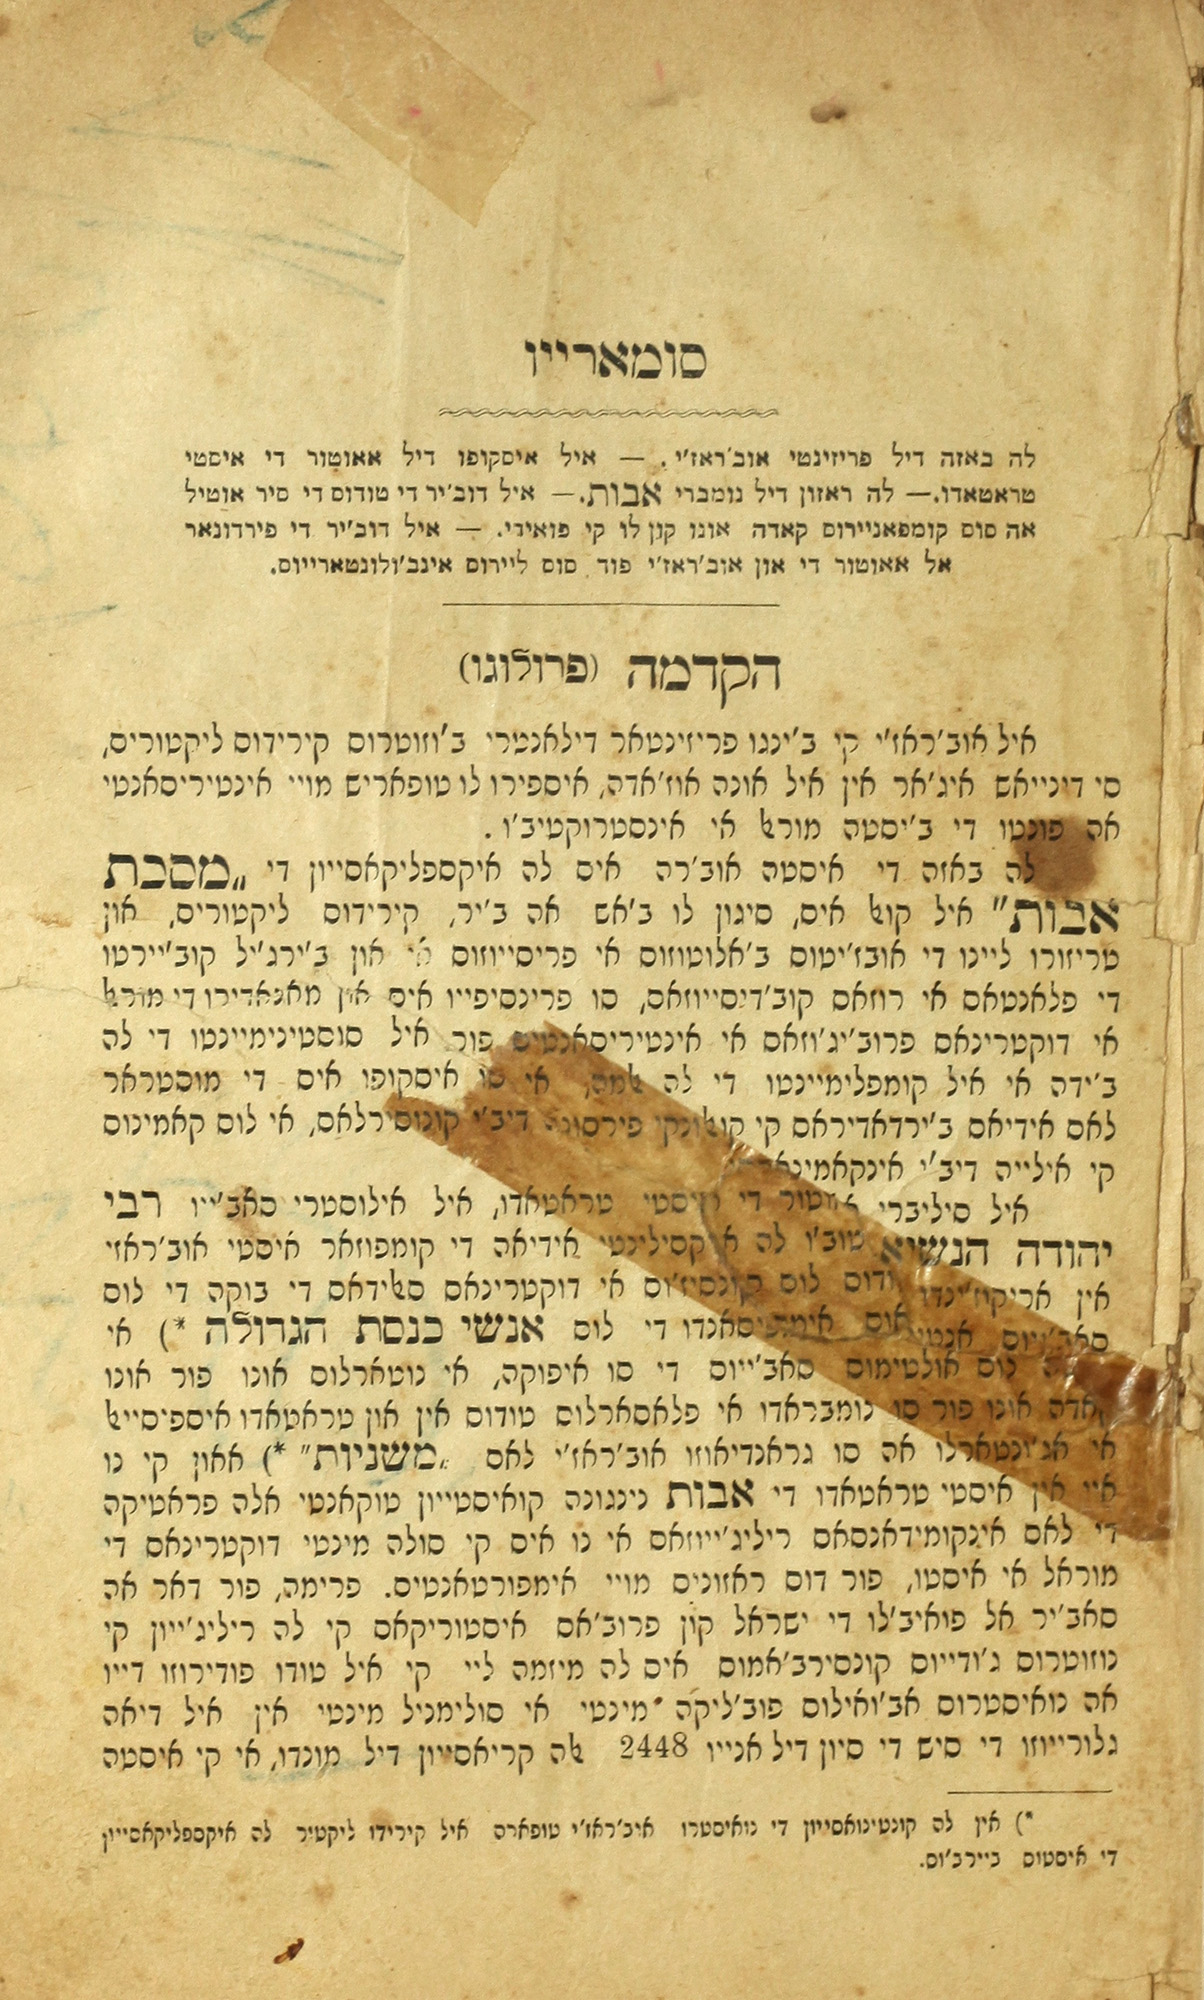 סומארייו
לה באזה דיל פריזינטי אוב'ראז'י. — איל איסקופו דיל אאוטור די איסטי
טראטאדו.— לה ראזון דיל נומברי אבות.— איל דוב'יר די טודוס די סיר אוטיל
אה סוס קומפאניירוס קאדה אונו קון לו קי פואידי. — איל דוב'יר די פירדונאר
אל אאוטור די און אוב'ראז'י פוד סוס ליירוס אינב'ולונטארייוס.
הקדמה (פרולוגו)
איל אוב'ראז'י קי ב'ינגו פריזינטאר דילאנטרי ב'וזוטרוס קירידוס ליקטוריס,
סי דינייאש איג'אר אין איל אונה אוז'אדה, איספירו לו טופאריש מויי אינטיריסאנטי
אה פונטו די ב'יסטה מורﭏ אי אינסטרוקטיב'ו.
לה באזה די איסטה אוב'רה איס לה איקספליקאסייון די „מסכת
אבות" איל קוﭏ איס, סיגון לו ב'אש אה ב'יר, קירידוס ליקטוריס, און
טריזורו ליינו די אובז'יטוס ב'אלוטוזוס אי פריסייוזוס אי און ב'ירג'יל קוב'יירטו
די פלאנטאס אי רוזאס קוב'דיסייוזאס, סו פרינסיפייו איס און מאנאדירו די מורﭏ
אי דוקטרינאס פרוב'יג'וזאס אי אינטיריסאנטיס פור איל סוסטינימיינטו די לה
ב'ידה אי איל קומפלימיינטו די לה ﭏמה, אי סו איסקופו איס די מוסטראר
לאס אידיאס ב'ירדאדיראס קי קוﭏונקי פירסונה דיב'י קונוסירלאס, אי לוס קאמינוס
קי אילייה דיב'י
איל סיליברי אאוטור די איסטי טראטאדו, איל אילוסטרי סאב'ייו רבי
יהודה הנשיא טוב'ו לה איקסילינטי אידיאה די קומפוזאר איסטי אוב'ראזי
אין לוס קונסיז'וס אי דוקטרינאס סﭏידאס די בוקה די לוס
סאב'ייוס די לוס אנשי כנסת הגדולה *) אי
לוס אולטימוס סאב'ייוס די סו איפוקה, אי נוטארלוס אונו פור אונו
קאדה אונו פור סו נומבראדו אי פלאסארלוס טודוס אין און טראטאדו איספיסייﭏ
אי אג'ונטארלו אה סו גראנדיאוזו אוב'ראז'י לאס „משניות" *) אאון קי נו
איי אין איסטי טראטאדו די אבות נינגונה קואיסטייון טוקאנטי אלה פראטיקה
די לאס אינקומידאנסאס ריליג'ייוזאס אי נו איס קי סולה מינטי דוקטרינאס די
מוראל אי איסטו, פור דוס ראזוניס מויי אימפורטאנטיס. פרימה, פור דאר אה
סאב'יר אל פואיב'לו די ישראל קון פרוב'אס איסטוריקאס קי לה ריליג'ייון קי
נוזוטרוס ג'ודייוס קונסירב'אמוס איס לה מיזמה ליי קי איל טודו פודירוזו דייו
אה נואיסטרוס אב'ואילוס פוב'ליקה מינטי אי סולימניל מינטי אין איל דיאה
גלורייוזו די סיש די סיון דיל אנייו 2448 ﭏה קריאסייון דיל מונדו, אי קי איסטה
*) אין לה קונטינואסייון די נואיסטרו איב'ראז'י טופארה איל קירידו ליקטיר לה איקספליקאסייון
די איסטוס ביירב'וס.